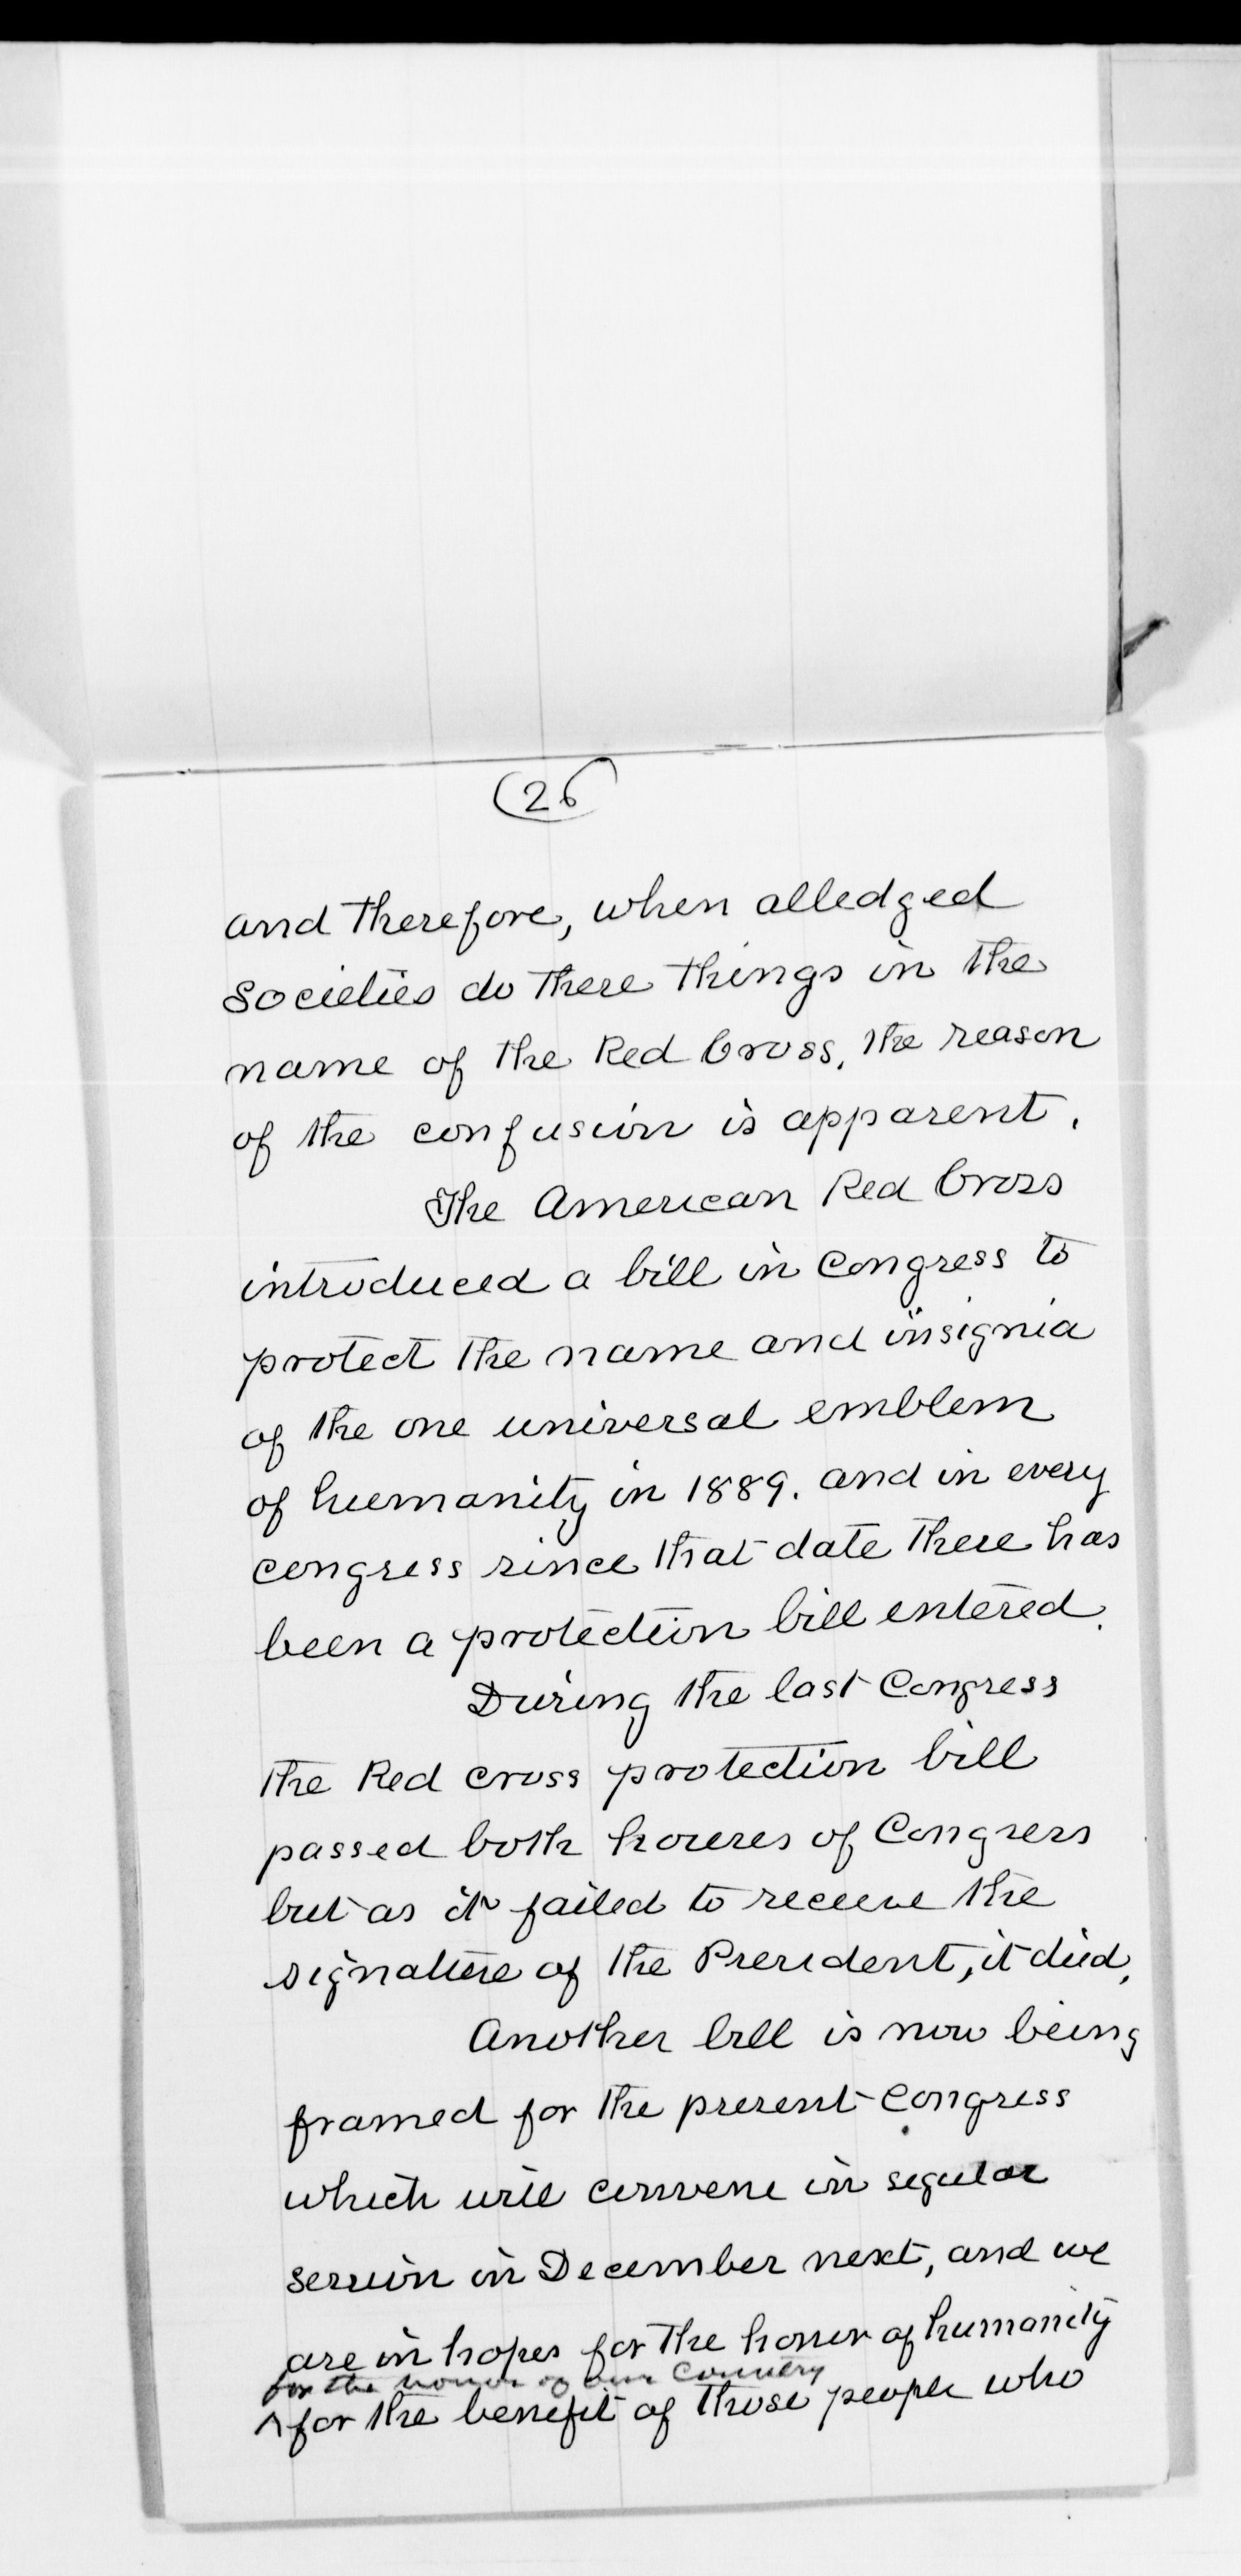 26
and therefore, when alledged
Societies do these things in the
name of the Red Cross, the reason
of the confusion is apparent.
The American Red Cross
introduced a bill in Congress to
protect the name and insignia
of the one universal emblem
of humanity in 1889. and in every
congress since that date there has
been a protection bill entered.
During the last Congress
the Red cross protection bill
passed both houses of Congress
but as it failed to receive the
signature of the President, it died.
Another bill is now being
framed for the present Congress
which will convene in regular
session in December next, and we
are in hopes for the honor of humanity
for the honor of our Country
^ for the benefit of those people who